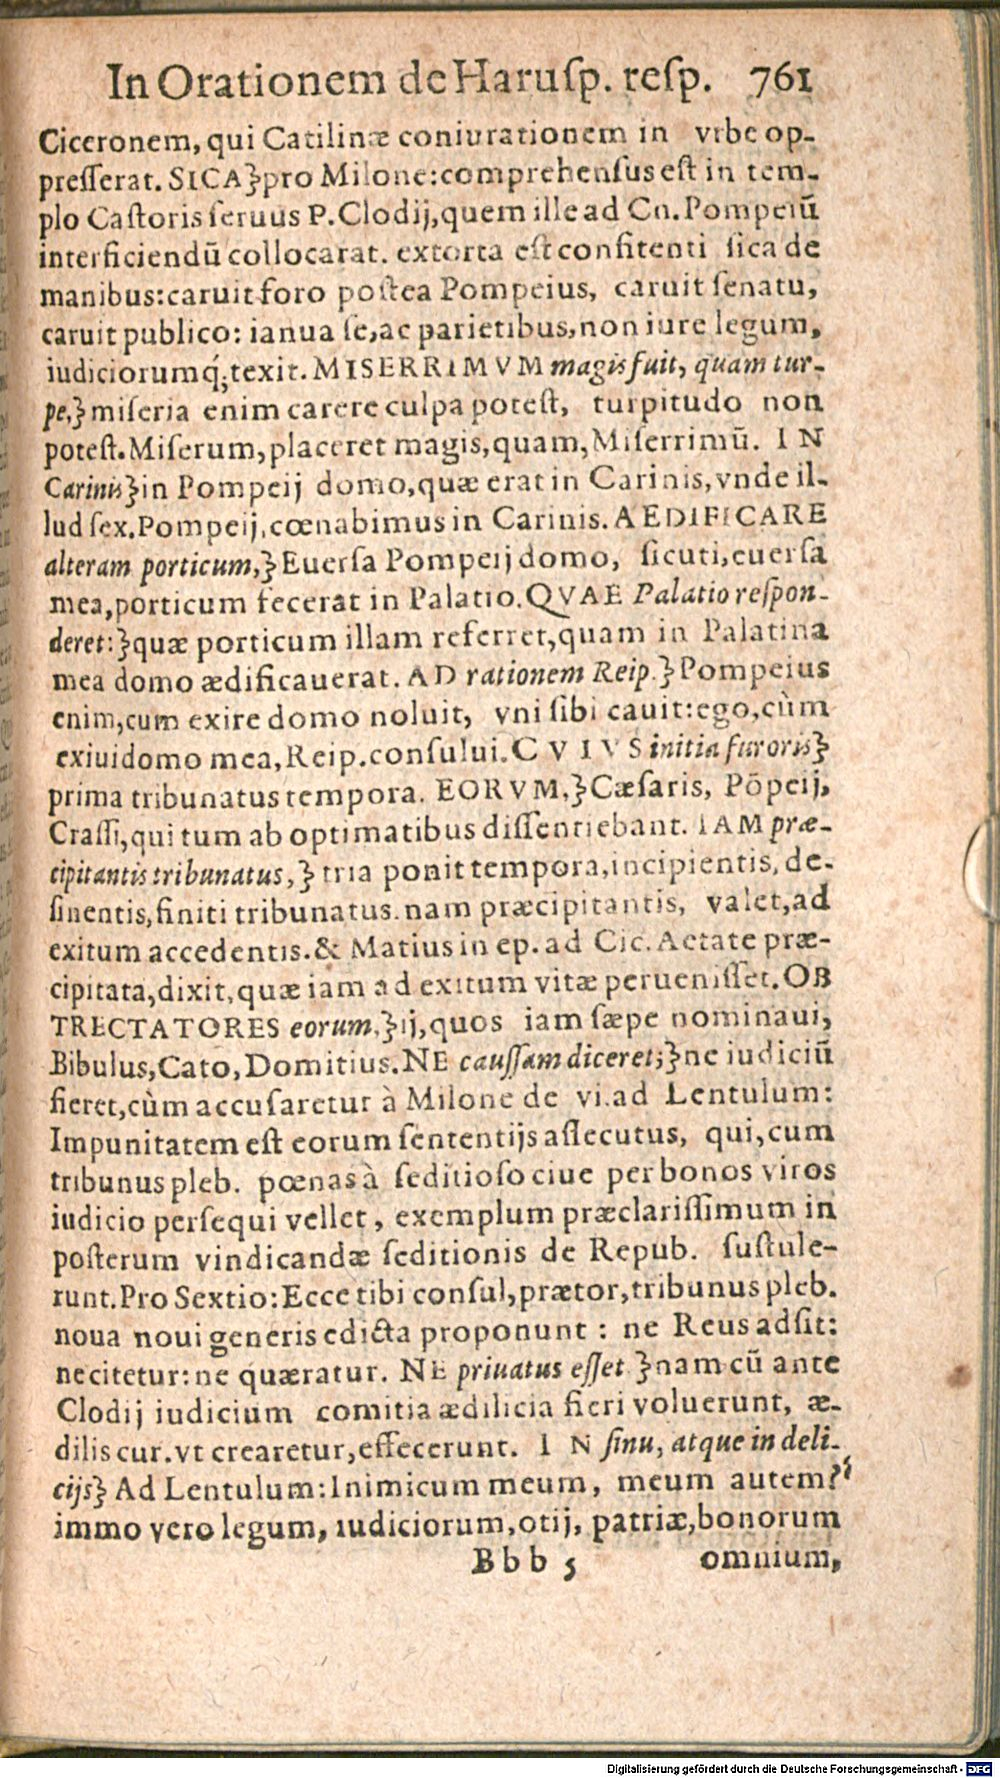 In Orationem de Haruſp. reſp. 761
Ciceronem, qui Catilinæ coniurationem in vrbe op-
preſſerat. SICA} pro Milone: comprehenſus eſt in tem-
plo Caſtoris ſeruus P. Clodij, quem ille ad Cn. Pompeiū
interficiendū collocarat. extorta eſt confitenti ſica de
manibus: caruit foro poſtea Pompeius, caruit ſenatu,
caruit publico: ianua ſe, ac parietibus, non iure legum,
iudiciorumq́; texit. MISERRIMVM magis fuit, quam tur-
pe,} miſeria enim carere culpa poteſt, turpitudo non
poteſt. Miſerum, placeret magis, quam, Miſerrimū. IN
Carinis} in Pompeij domo, quæ erat in Carinis, vnde il-
lud ſex. Pompeij, cœnabimus in Carinis. AEDIFICARE
alteram porticum,} Euerſa Pompeij domo, ſicuti, euerſa
mea, porticum fecerat in Palatio. QVAE Palatio reſpon-
deret:} quæ porticum illam referret, quam in Palatina
mea domo ædificauerat. AD rationem Reip.} Pompeius
enim, cum exire domo noluit, vni ſibi cauit: ego, cùm
exiui domo mea, Reip. conſului. CVIVS initia furoris}
prima tribunatus tempora. EORVM,} Cæſaris, Pōpeij,
Craſſi, qui tum ab optimatibus diſſentiebant. IAM præ-
cipitantis tribunatus,} tria ponit tempora, incipientis, de-
ſinentis, finiti tribunatus. nam præcipitantis, valet, ad
exitum accedentis. & Matius in ep. ad Cic. Aetate præ-
cipitata, dixit, quæ iam ad exitum vitæ perueniſſet. OB
TRECTATORES eorum,} ij, quos iam ſæpe nominaui,
Bibulus, Cato, Domitius. NE cauſſam diceret;} ne iudiciū
fieret, cùm accuſaretur à Milone de vi. ad Lentulum:
Impunitatem eſt eorum ſententijs aſſecutus, qui, cum
tribunus pleb. pœnas à ſeditioſo ciue per bonos viros
iudicio perſequi vellet, exemplum præclariſſimum in
poſterum vindicandæ ſeditionis de Repub. ſuſtule-
runt. Pro Sextio: Ecce tibi conſul, prætor, tribunus pleb.
noua noui generis edicta proponunt: ne Reus adſit:
ne citetur: ne quæratur. NE priuatus eſſet} nam cū ante
Clodij iudicium comitia ædilicia fieri voluerunt, æ-
dilis cur. vt crearetur, effecerunt. IN ſinu, atque in deli-
cijs} Ad Lentulum: Inimicum meum, meum autem?
immo vero legum, iudiciorum, otij, patriæ, bonorum
Bbb 5 omnium,
Digitalisierung gefördert durch die Deutsche Forschungsgemeinschaft - DFG